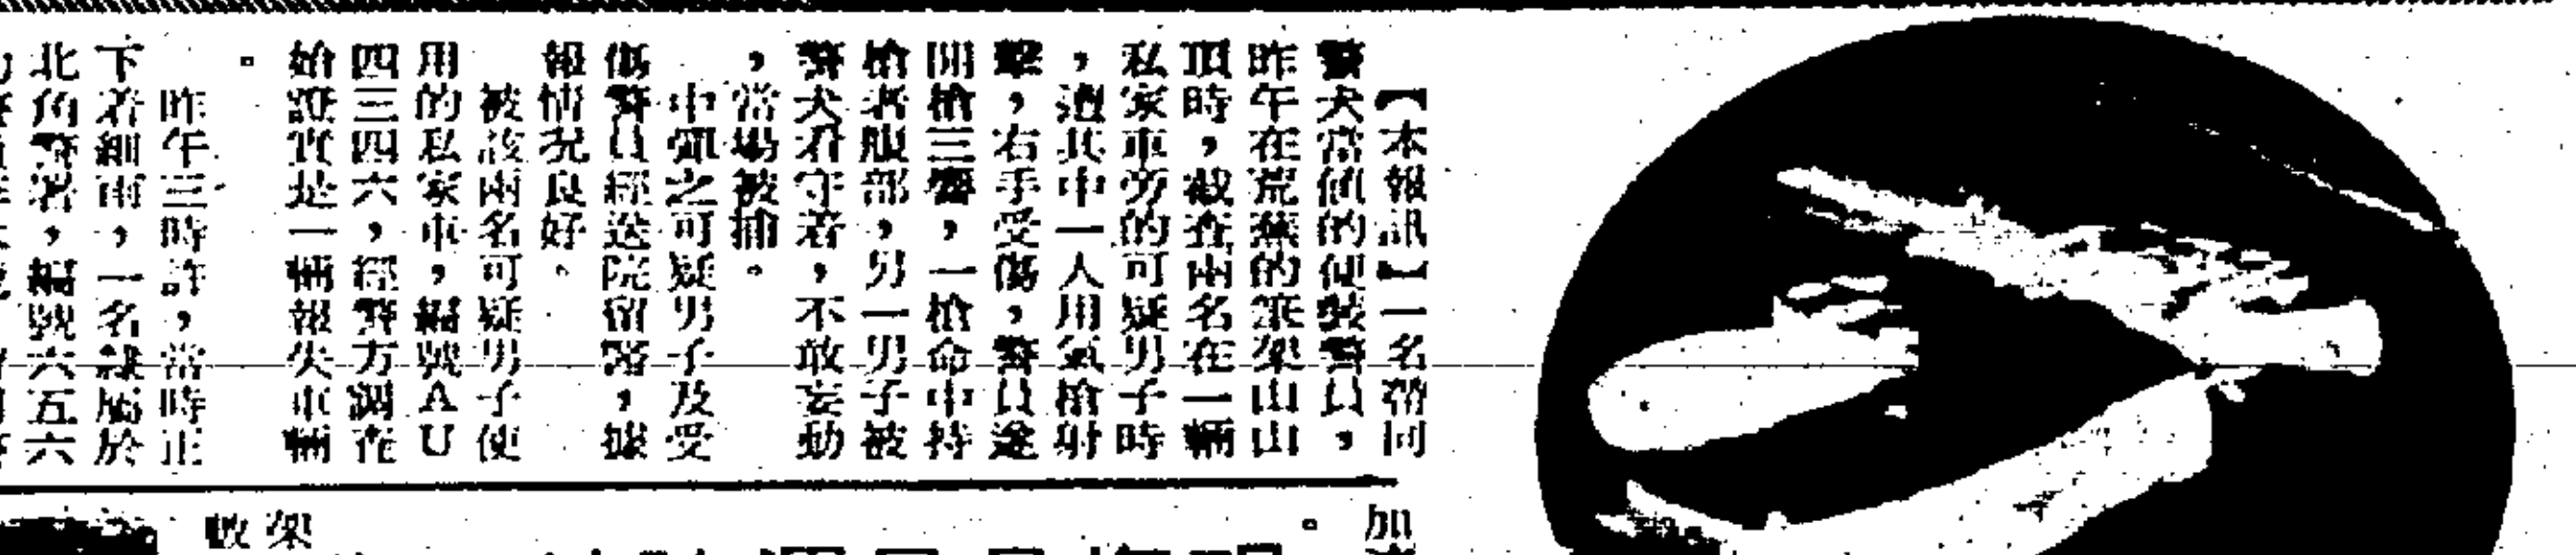 【本報訊】一名帶同
警犬當値的便裝警員，
昨午在荒蕪的筆架山山
頂時，截查兩名在一輛
私家車旁的可疑男子時
，遭其中一人用氣槍射
擊，右手受傷，警員遂
開槍三響，一槍命中持
槍者腹部，另一男子被
警犬看守着，不敢妄動
，當場被捕。
中彈之可疑男子及受
傷警員經送院留醫，據
報情況良好。
被該兩名可疑男子使
用的私家車，編號ＡＵ
四三四六，經警方調查
始證實是一輛報失車輛
。
昨午三時許，當時正
下着細雨，一名隸屬於
北角警署，編號六五六
加
。
架